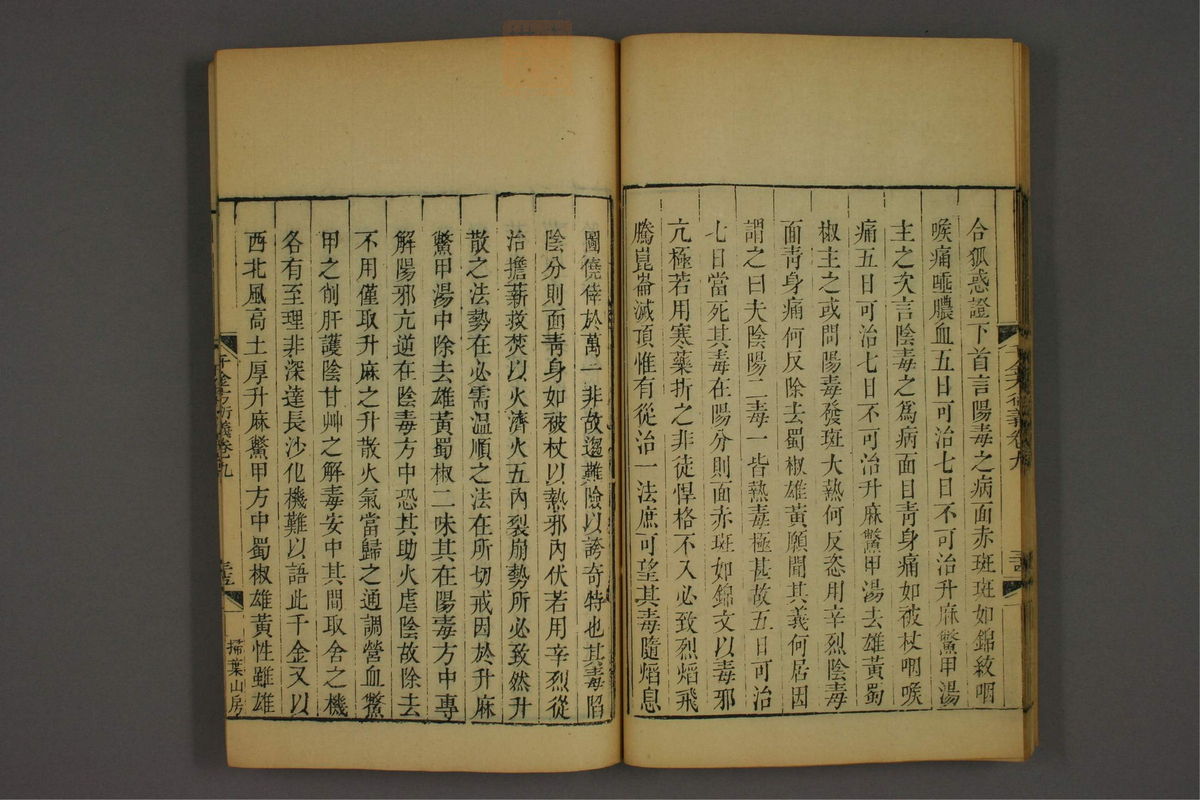 合狐惑證下首言陽毒之病面赤斑斑如錦紋咽
喉痛唾膿血五日可治七日不可治升麻鱉甲湯
主之次言陰毒之爲病面目青身痛如被杖咽喉
痛五日可治七日不可治升麻鱉甲湯去雄黃蜀
椒主之或問陽毒發斑大熱何反恣用辛烈陰毒
面青身痛何反除去蜀椒雄黃願聞其義何居因
謂之曰夫陰陽二毒一皆熱毒極甚故五日可治
七日當死其毒在陽分則面赤斑如錦文以毒邪
亢極若用寒藥折之非徒悍格不入必致烈熖飛
騰崑崙滅頂惟有從治一法庶可望其毒隨熖息
圖僥倖於萬一非故邀難險以誇奇特也其毒陷
陰分則面青身如被杖以熱邪內伏若用辛烈從
治擔薪救焚以火濟火五內裂崩勢所必致然升
散之法勢在必需溫順之法在所切戒因於升麻
鱉甲湯中除去雄黃蜀椒二味其在陽毒方中專
解陽邪亢逆在陰毒方中恐其助火虐陰故除去
不用僅取升麻之升散火氣當歸之通調營血鱉
甲之削肝護陰甘艸之解毒安中其間取舍之機
各有至理非深達長沙化機難以語此千金又以
西北風高土厚升麻鱉甲方中蜀椒雄黃性雖雄
千金方衍義卷九
三五
掃葉山房